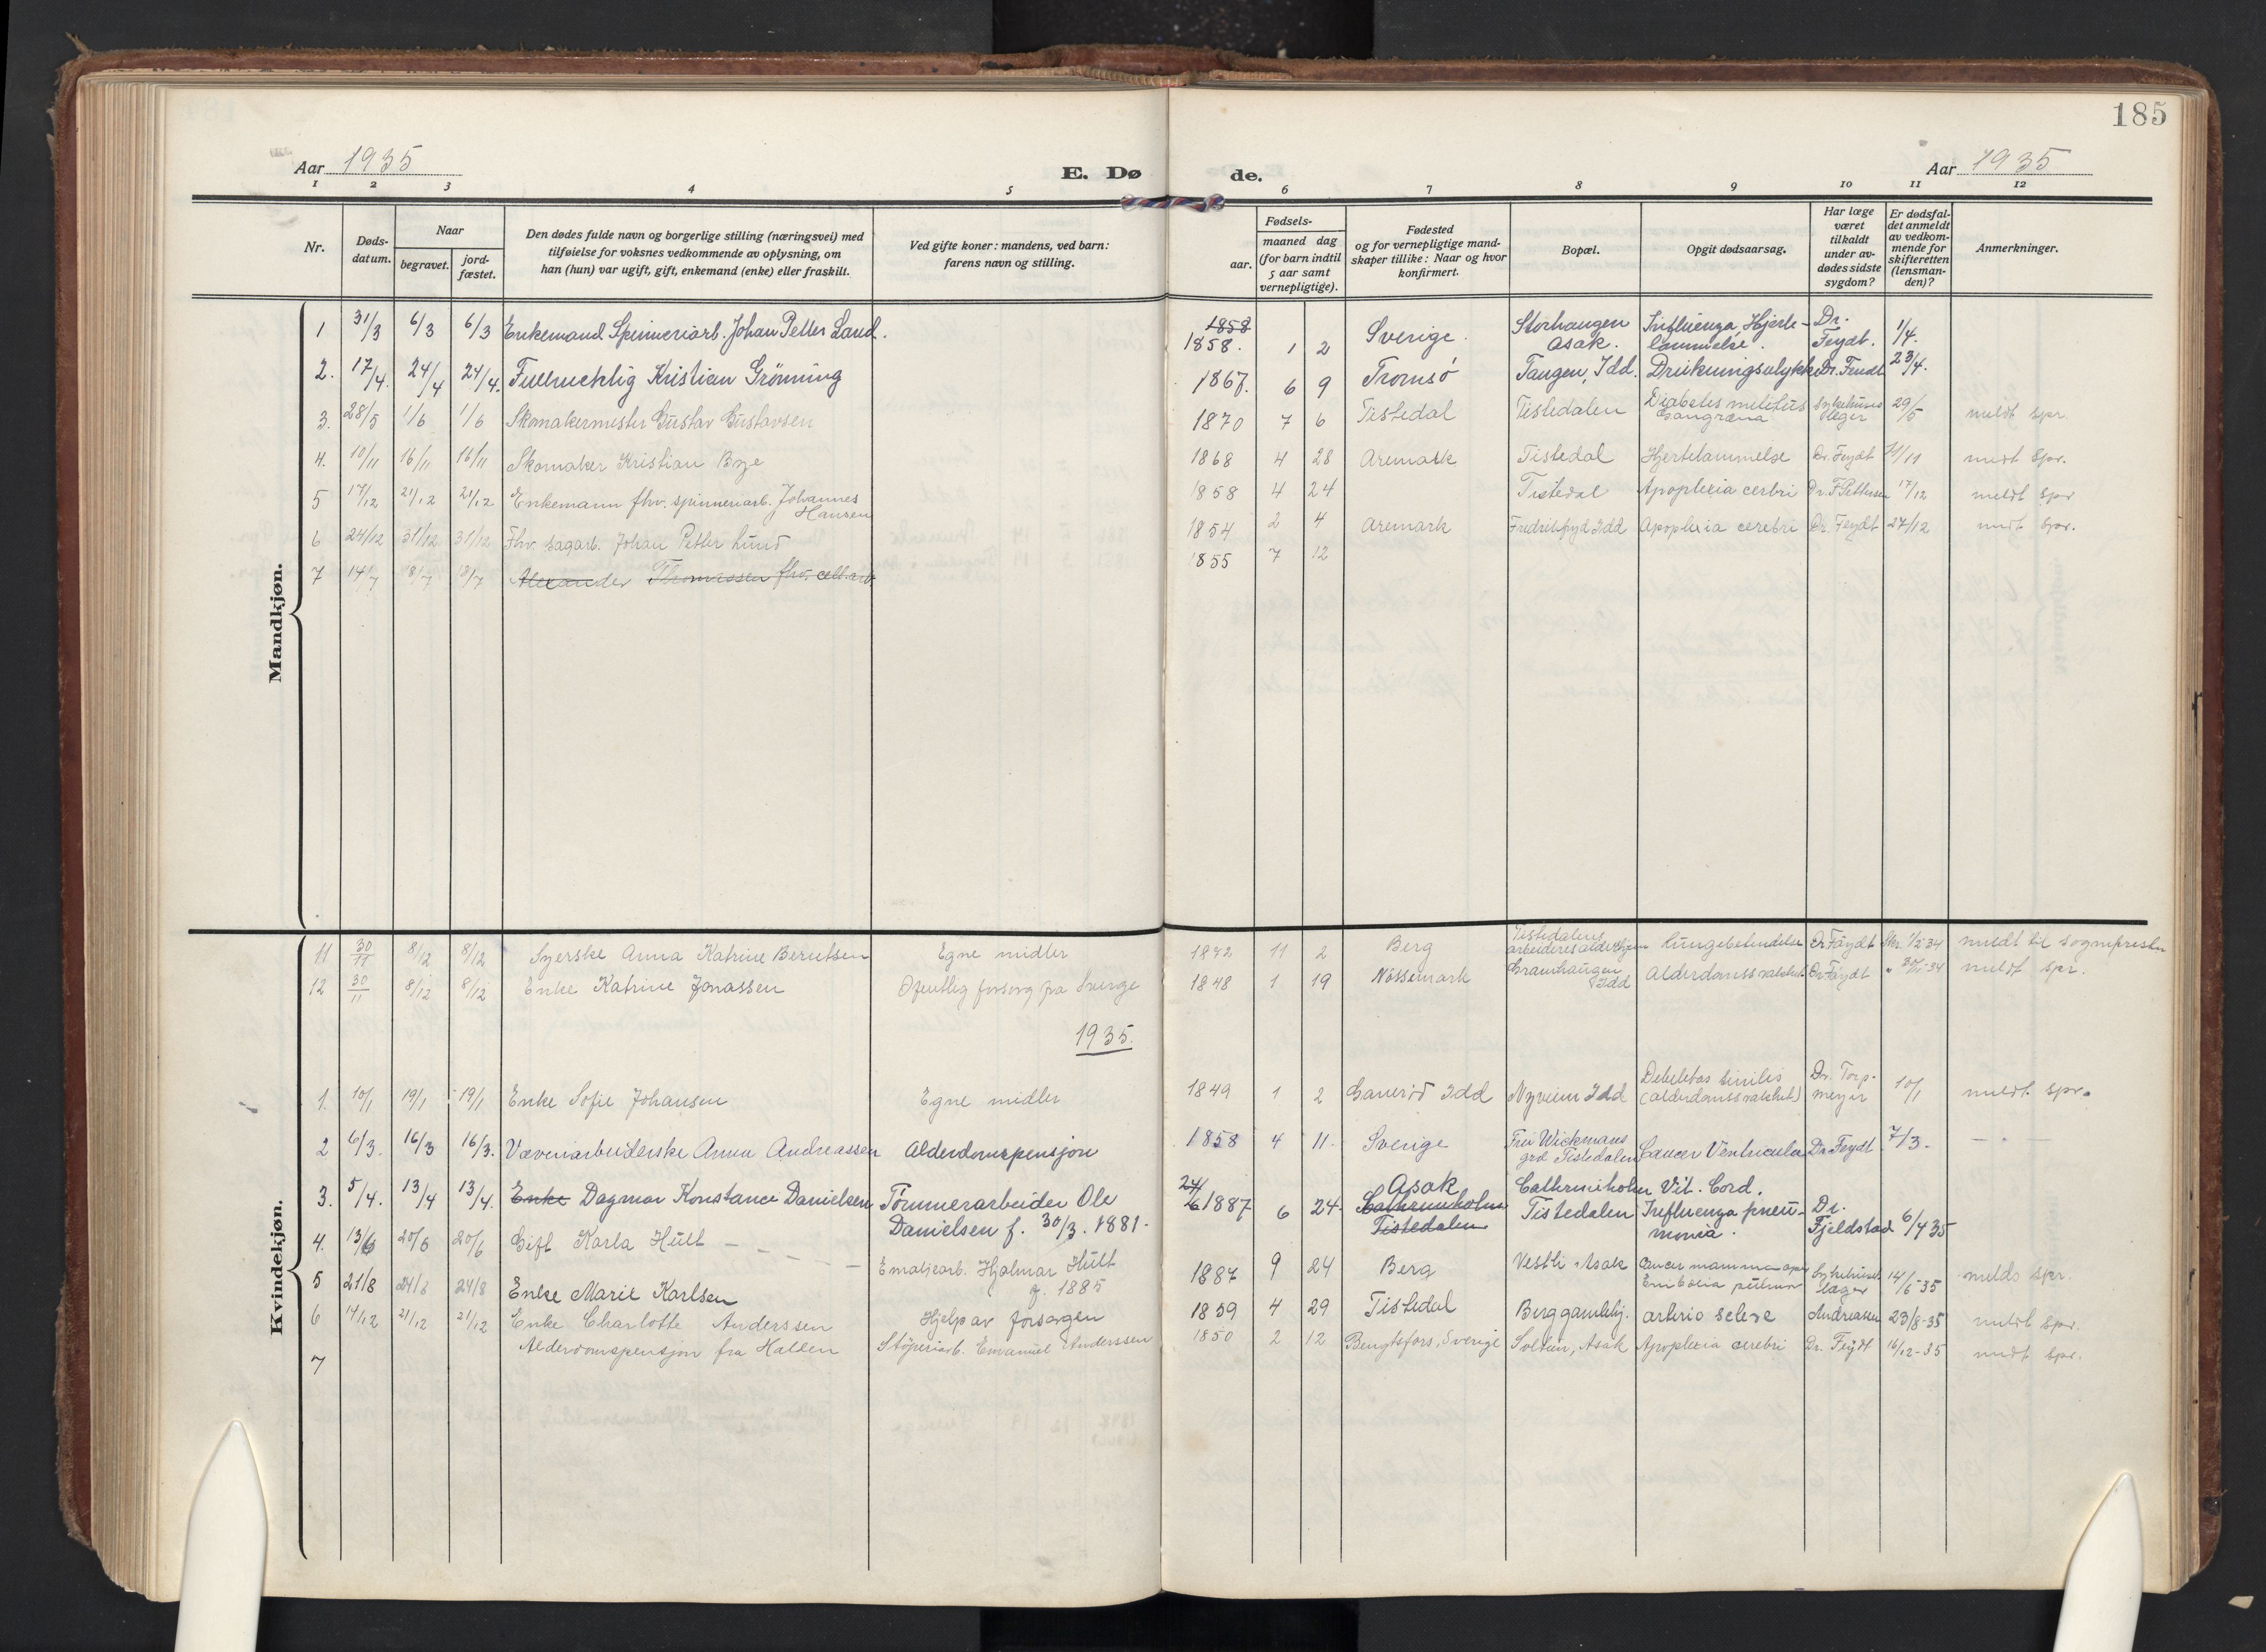 185
Aar 1935
E. Dø
de.
Aar 1935
1 2 3 4 5 6 7 8 9 10 11 12
Nr.
Døds-
datum.
Naar
begravet.
jord-
fæstet.
Den dødes fulde navn og borgerlige stilling (næringsvei) med
tilføielse for voksnes vedkommende av oplysning, om
han (hun) var ugift, gift, enkemand (enke) eller fraskilt.
Ved gifte koner: mandens, ved barn:
farens navn og stilling.
Fødsels-
aar.
maaned dag
(for barn indtil
5 aar samt
vernepligtige).
Fødested
og for vernepligtige mand-
skaper tillike: Naar og hvor
konfirmert.
Bopæl.
Opgit dødsaarsag.
Har læge
været
tilkaldt
under av-
dødes sidste
sygdom?
Er dødsfal-
det anmeldt
av vedkom-
mende for
skifteretten
(lensman-
den)?
Anmerkninger.
Mandkjøn.
1 31/3 6/3 6/3 Enkemand Spinneriarb. Johan Petter Lund. 1858 1858. 1 2 Sverige. Storhaugen Asak. Influenza, Hjerte-lammelse. Dr. Feydt. 1/4.
2. 17/4. 24/4 24/4. Fullmektig Kristian Grönning 1867. 6 9 Tromsö Tangen, Idd. Drukningsulykke Dr. Feydt 23/4.
3. 28/5 1/6 1/6 Skomakermester Gustav Gustavsen 1870 7 6 Tistedal Tistedalen Diabetes melitus Gangræna Sykehusets læger 29/5 meldt spr.
4. 10/11 16/11 16/11 Skomaker Kristian Bye 1868 4 28 Aremark Tistedal Hjertelammelse Dr. Feydt 11/11 meldt spr.
5 17/12 21/12 21/12 Enkemann fhv. spinneriarb. Johannes Hansen 1858 4 24 Tistedal Apoplexia cerbri Dr. F. Pettersen 17/12 meldt spr
6 24/12 31/12 31/12 Fhv. sagarb. Johan Petter Lund 1854 2 4 Aremark Fredriksfryd Idd Apoplexia cerebri Dr. Feydt 27/12 meldt spr.
7 14/7 18/7 18/7 Alexander Thomassen fhv. cell.arb. 1855 7 12
Kvindekjøn.
11 30/11 8/12 8/12 Syerske Anna Katrine Berntsen Egne midler 1872 11 2 Berg Tistedalens arbeideres aldershjem Lungebetendelse Dr Fäydt Skr. 1/2 34 meldt til sognepresten
12 30/11 8/12 8/12 Enke Katrine Jonassen Ofentlig forsorg fra Sverige 1848 1 19 Nössemark Idd Alderdomssvakhet Dr Fäydt " 30/11-34 meldt spr.
1935.
1. 10/1 19/1 19/1 Enke Sofie Johansen Egne midler 1849 1 2 Idd Nyveien Idd (alderdomssvakhet) Dr. Torp-meyer 10/1 meldt spr.
2 6/3. 16/3 16/3. Væveriarbeiderske Anna Andreassen Alderdomspensjon 1858 4 11. Sverige Wickmans grd Tistedalen Cancer Ventriculi Dr Feydt 7/3. — " —
3. 5/4. 13/4 13/4. Enke Dagmar Konstance Danielsen Tømmerarbeider Ole Danielsen f. 30/3. 1881. 24/6 1887 6 24. Asak Catherineholm Tistedalen Catherineholm Tistedalen Vit. Cord. Influenza pneu-monia. Dr. Fjeldstad 6/4 35
4. 13/6 20/6 20/6 Gift Karla Hult Emaljearb. Hjalmar Hult f. 1885 1887 9 24 Berg Vestli Asak cancer mamma Embolia pulmon Sykehusets læger 14/6-35 meldt spr.
5 21/8 24/8 24/8 Enke Marie Karlsen Hjelp av forsorgen 1859 4 29 Tistedal Berg gamlehj. arterio sclerose Andreassen 23/8-35 meldt spr.
6 14/12 21/12 21/12 Enke Charlotte Anderssen Alderdomspensjon fra Halden Støperiarb. Emanuel Anderssen 1850 2 12 Bengtsfors, Sverige Solheim, Asak Apoplexia cerebri Dr. Feydt 16/12-35 meldt spr.
7